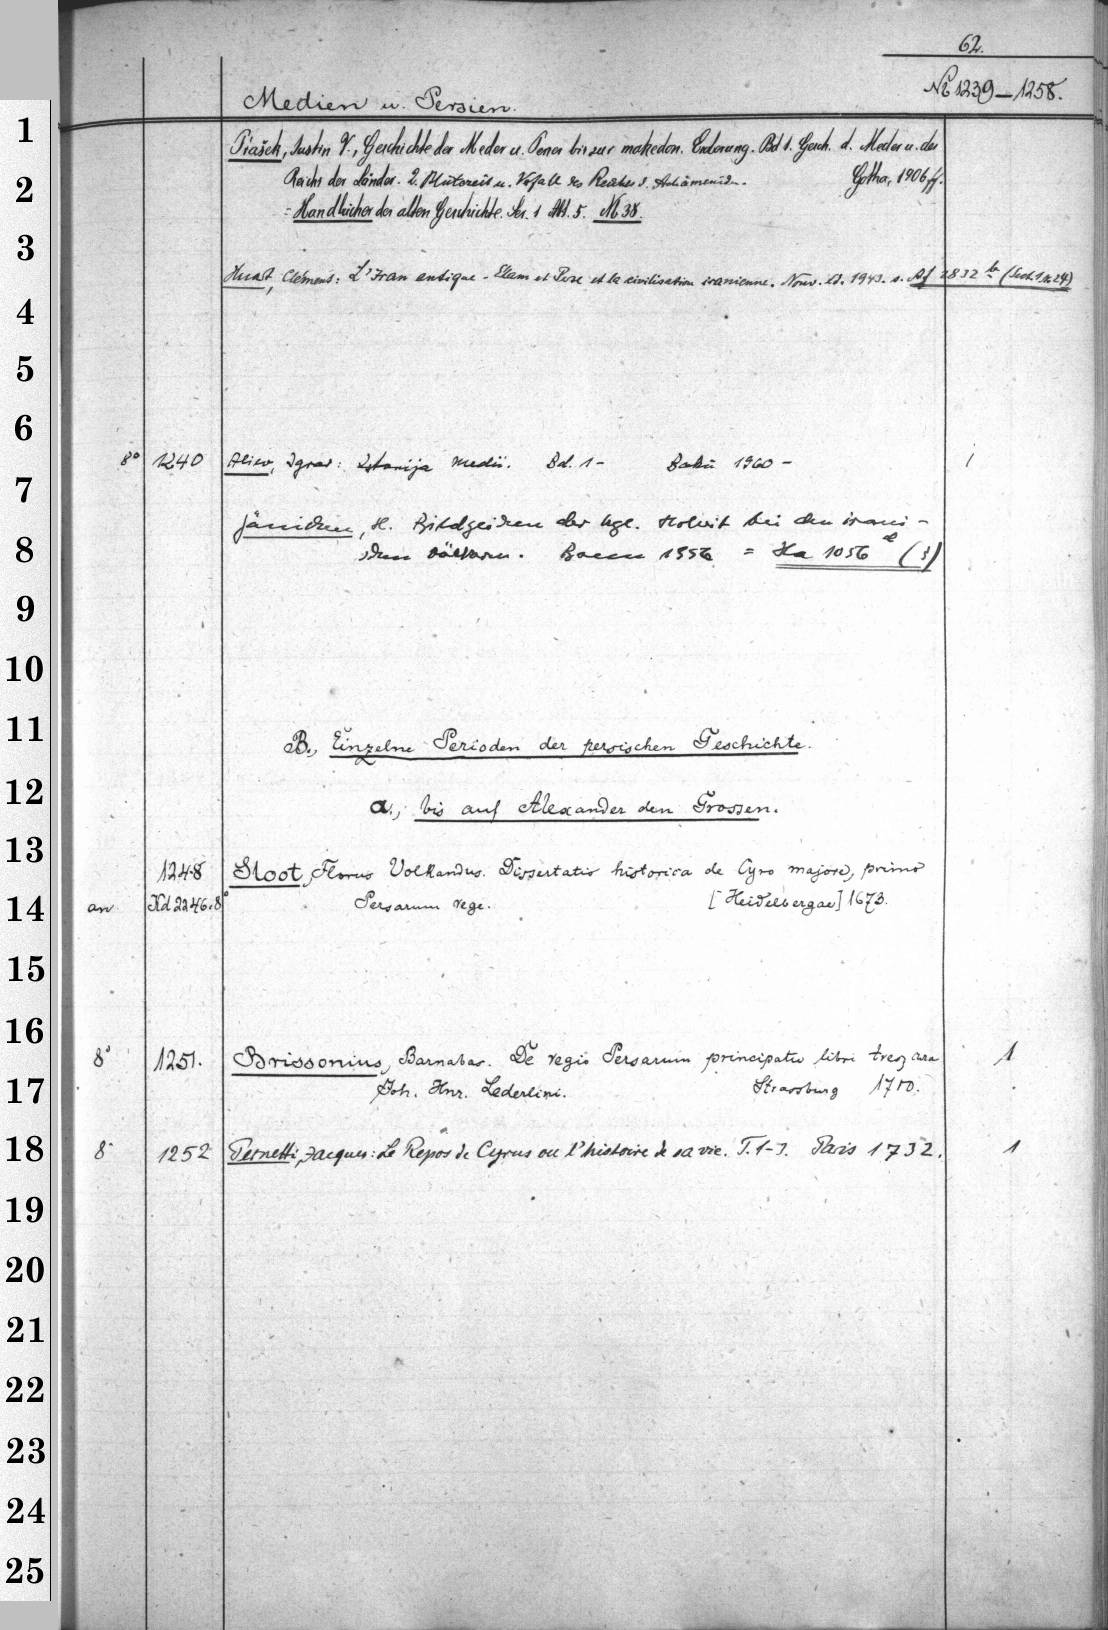 62.
Medien u. Persien.
№ 1239–1258.
1
Prašek, Justin V., Geschichte der Meder u. Perser bis zur makedon. Eroberung. Bd 1. Gesch. d. Meder u. des
2
Reichs der Länder. 2. Blütezeit u. Verfall des Reiches d. Achämeniden. Gotha, 1906 ff.
= Handbücher der alten Geschichte. Ser. 1 Abt. 5. № 38.
3
Huart, Clémens: L'Iran antique - Elam et Perse et la civilisation iranienne. Nouv. éd. 1943. s. Af 2832 (Sect. 1, 24)
4
5
6
8° 1240 Aliev, Igrar: Istorija Medii. Bd. 1 - Baku 1960 - 1
7
Jänichen, H. Bildzeichen der kgl. Hoheit bei den irani-
8
schen Völkern. Bonn 1956 = Ha 1056 (3)
9
10
11
B., Einzelne Perioden der persischen Geschichte.
12
a., bis auf Alexander den Grossen.
13
1248 Sloot, Florus Volkandus. Dissertatio historica de Cyro majore, primo
14
an Kd 2246.8° Persarum rege. [Heidelbergae] 1673.
15
16
8° 1251. Brissonius, Barnabas. De regio Persarum principatu libri tres, cura 1
17
Joh. Hnr. Lederlini. Strassburg 1710.
18
8° 1252 Pernetti, Jacques: Le Repos de Cyrus ou l'histoire de sa vie. T. 1-3. Paris 1732. 1
19
20
21
22
23
24
25